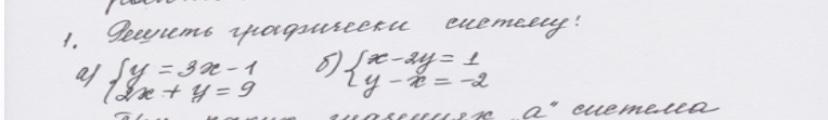 1. Решить графически систему:
а) {y = 3x - 1 б) {x - 2y = 1
{2x + y = 9 {y - x = -2
значениях „а“ система